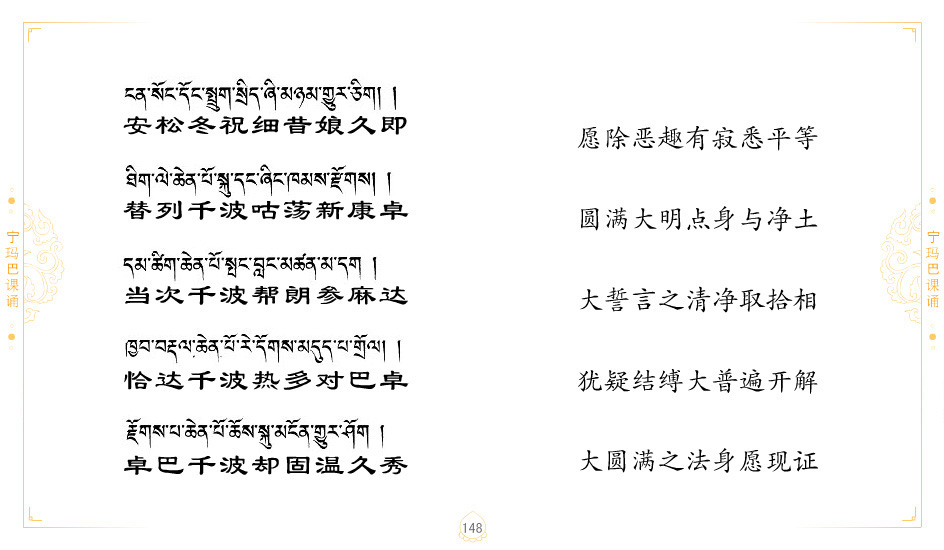 ངན་སོང་དོང་སྤྲུག་སྲིད་ཞི་མཉམ་གྱུར་ཅིག། །
安松冬祝细昔娘久即
ཐིག་ལེ་ཆེན་པོ་སྐུ་དང་ཞིང་ཁམས་རྫོགས། །
替列千波咕荡新康卓
དམ་ཚིག་ཆེན་པོ་སྤང་བླང་མཚན་མ་དག །
当次千波帮朗参麻达
ཁྱབ་བརྡལ་ཆེན་པོ་རེ་དོགས་མདུད་པ་གྲོལ། །
恰达千波热多对巴卓
རྫོགས་པ་ཆེན་པོ་ཆོས་སྐུ་མངོན་གྱུར་ཤོག །
卓巴千波却固温久秀
愿除恶趣有寂悉平等
圆满大明点身与净土
大誓言之清净取拾相
犹疑结缚大普遍开解
大圆满之法身愿现证
宁玛巴课诵
宁玛巴课诵
148